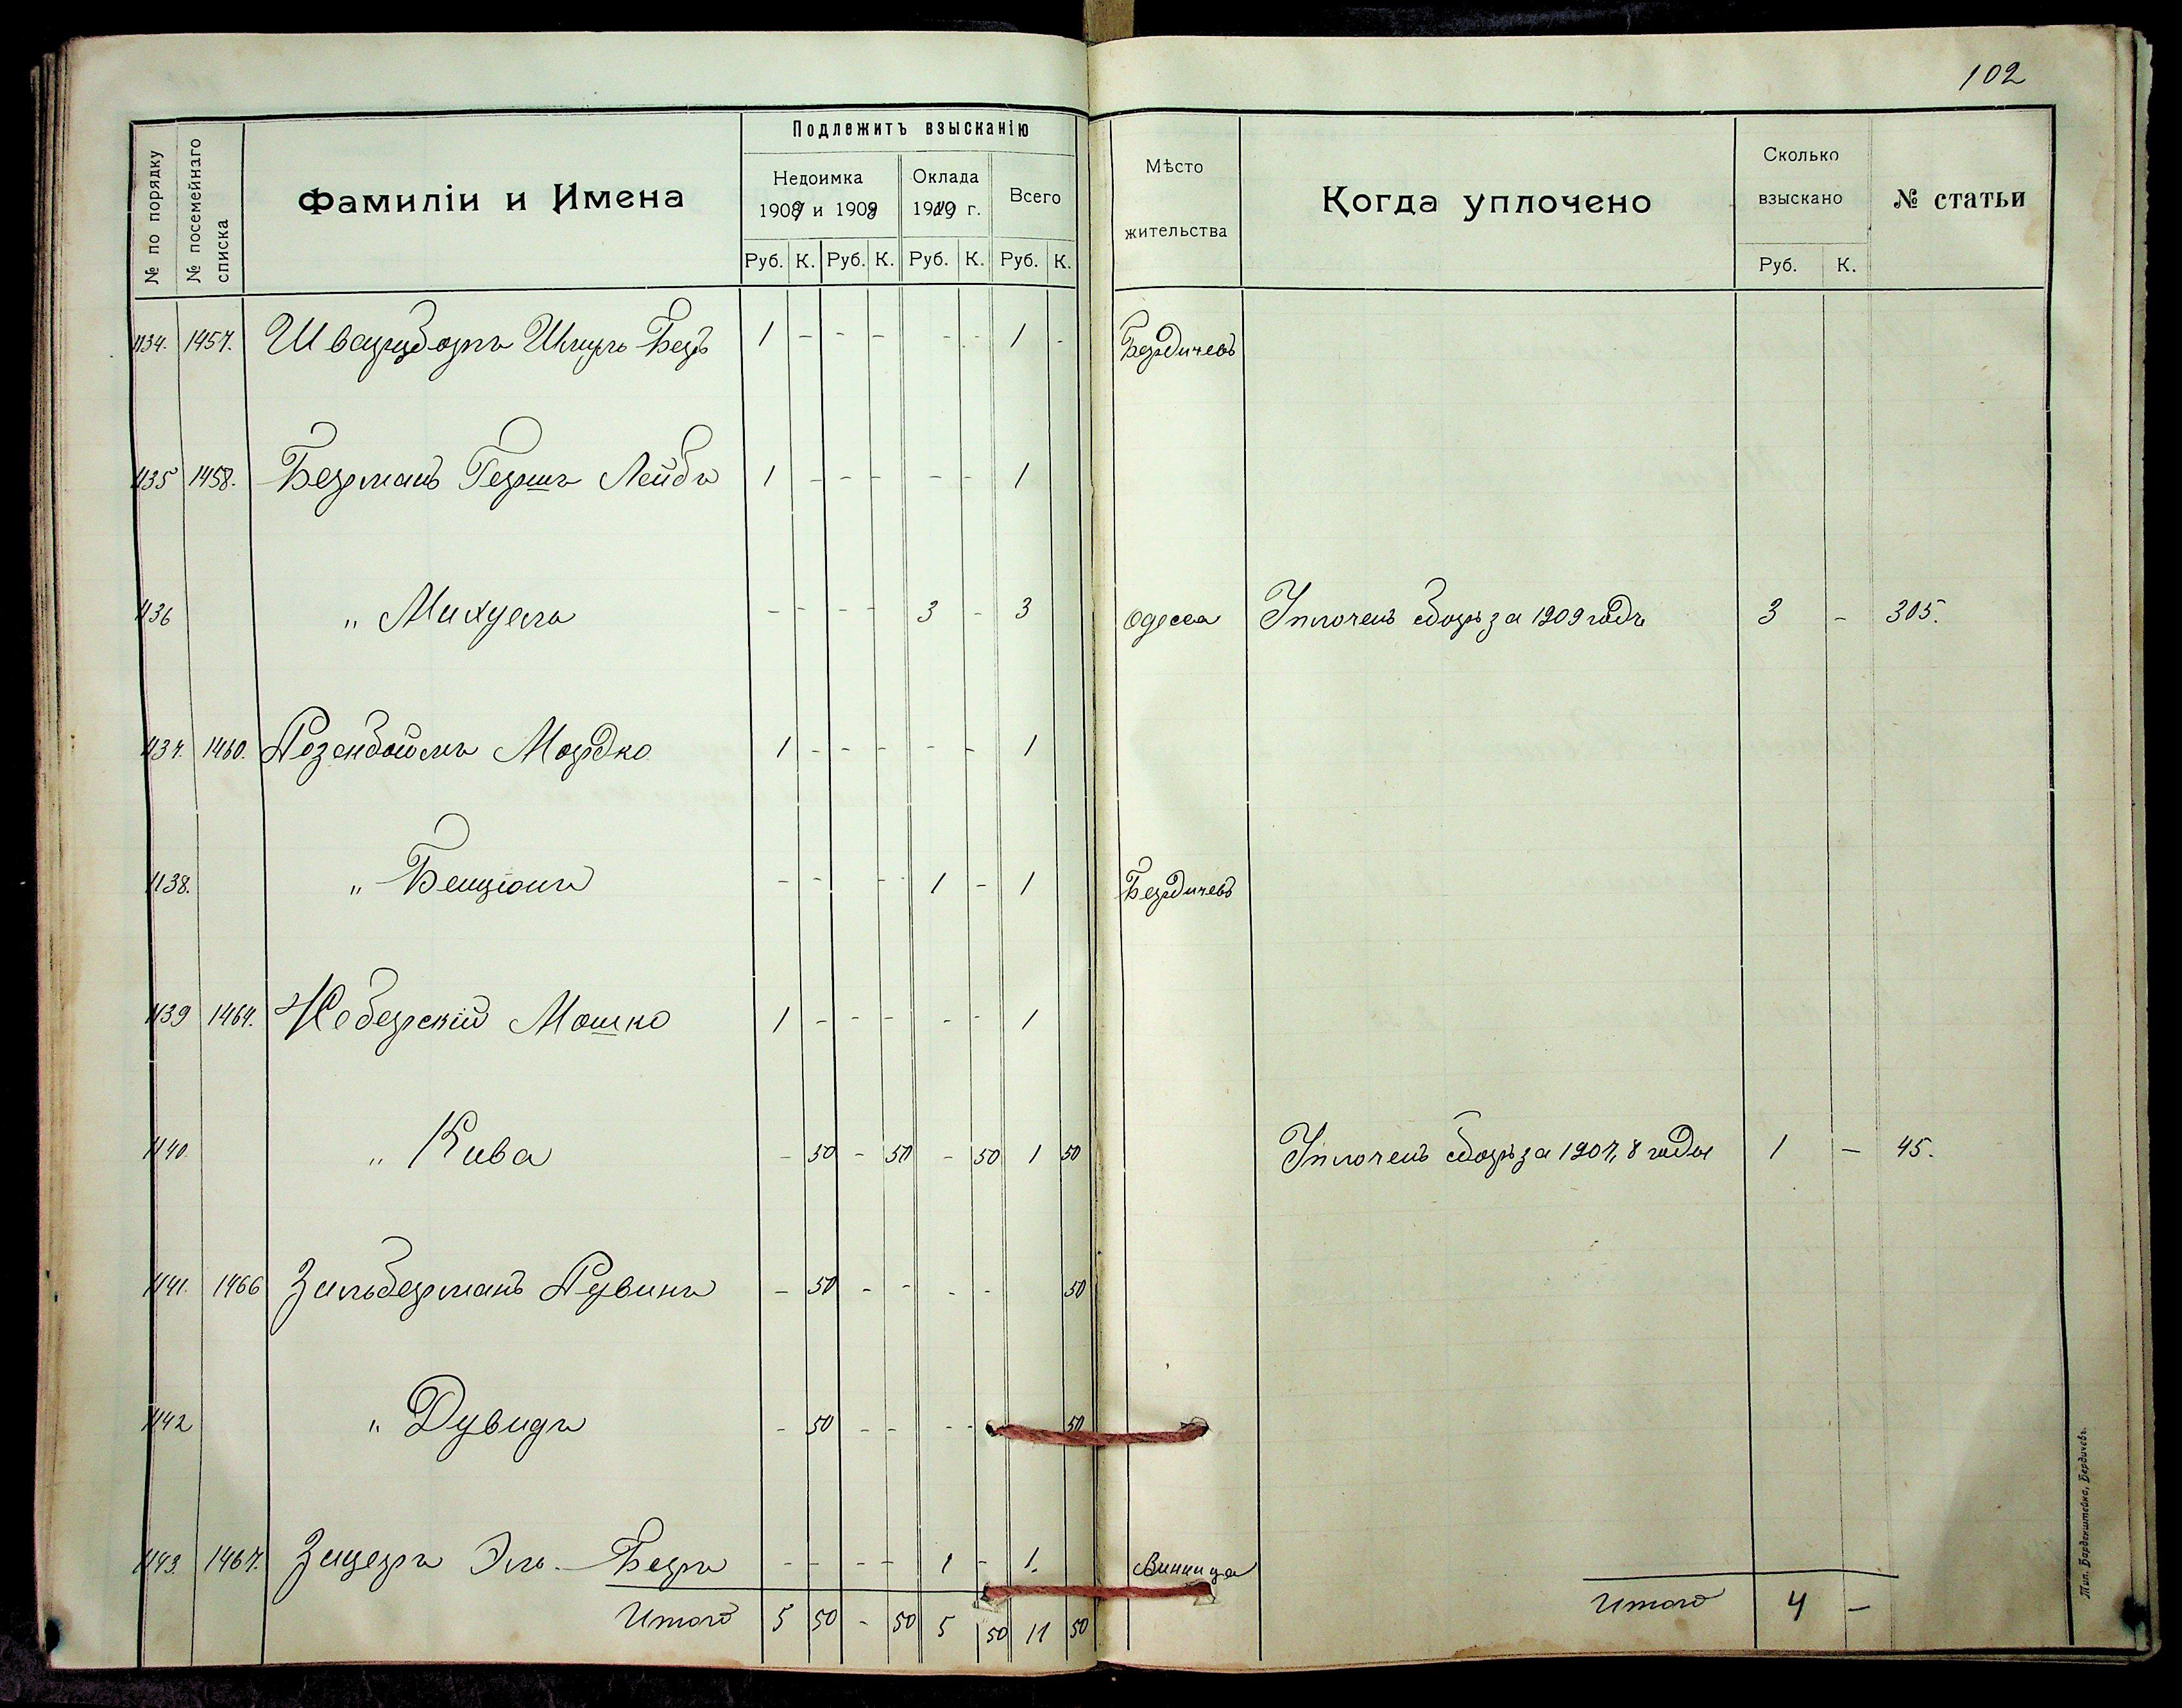 102
№ по порядку
№ посемейнаго списка
Фамиліи и Имена
Подлежитъ взысканію
Недоимка
1907 и 1908
Оклада
1909 г.
Всего
Руб. К. Руб. К. Руб. К. Руб. К.
Мѣсто жительства
Когда уплочено
Сколько взыскано
Руб. К.
№ статьи
1134. 1457. Шварцборгъ Шмуль Беръ 1 - - - - - 1 - Бердичевъ
1135 1458. Берманъ Гершъ Лейбъ 1 - - - - - 1
1136 „ Михуель - - - - 3 - 3 Одесса Уплоченъ сборъ за 1909 годъ 3 - 305.
1137. 1460. Розенбоймъ Мордко 1 - - - - - 1
1138. „ Бенціонъ - - - - 1 - 1 Бердичевъ
1139 1464. Жоберскій Мошко 1 - - - - - 1
1140. „ Кива - 50 - 50 - 50 1 50 Уплоченъ сборъ за 1907, 8 годы 1 - 45.
1141. 1466 Зильберманъ Рувинъ - 50 - - - - 50
1142 „ Дувидъ - 50 - - - - 50
1143. 1467. Зицеръ Эль-Беръ - - - - 1 - 1. Винница
Итого 5 50 - 50 5 50 11 50
Итого 4 -
Тип. Барденштейна, Бердичевъ.